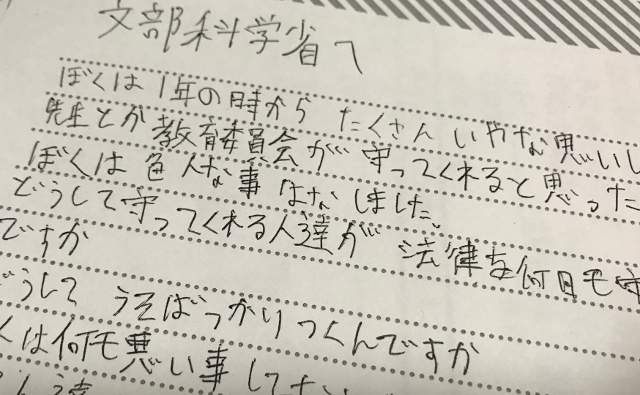 文部科学省へ
ぼくは1年の時から たくさん いやな思いし
先生とか教育委員会が 守ってくれると思った
ぼくは色んな事はなしました。
どうして守ってくれる人達が 法律を何回も守
ですか
どうして うそばっかりつくんですか
くは何も悪い事してな